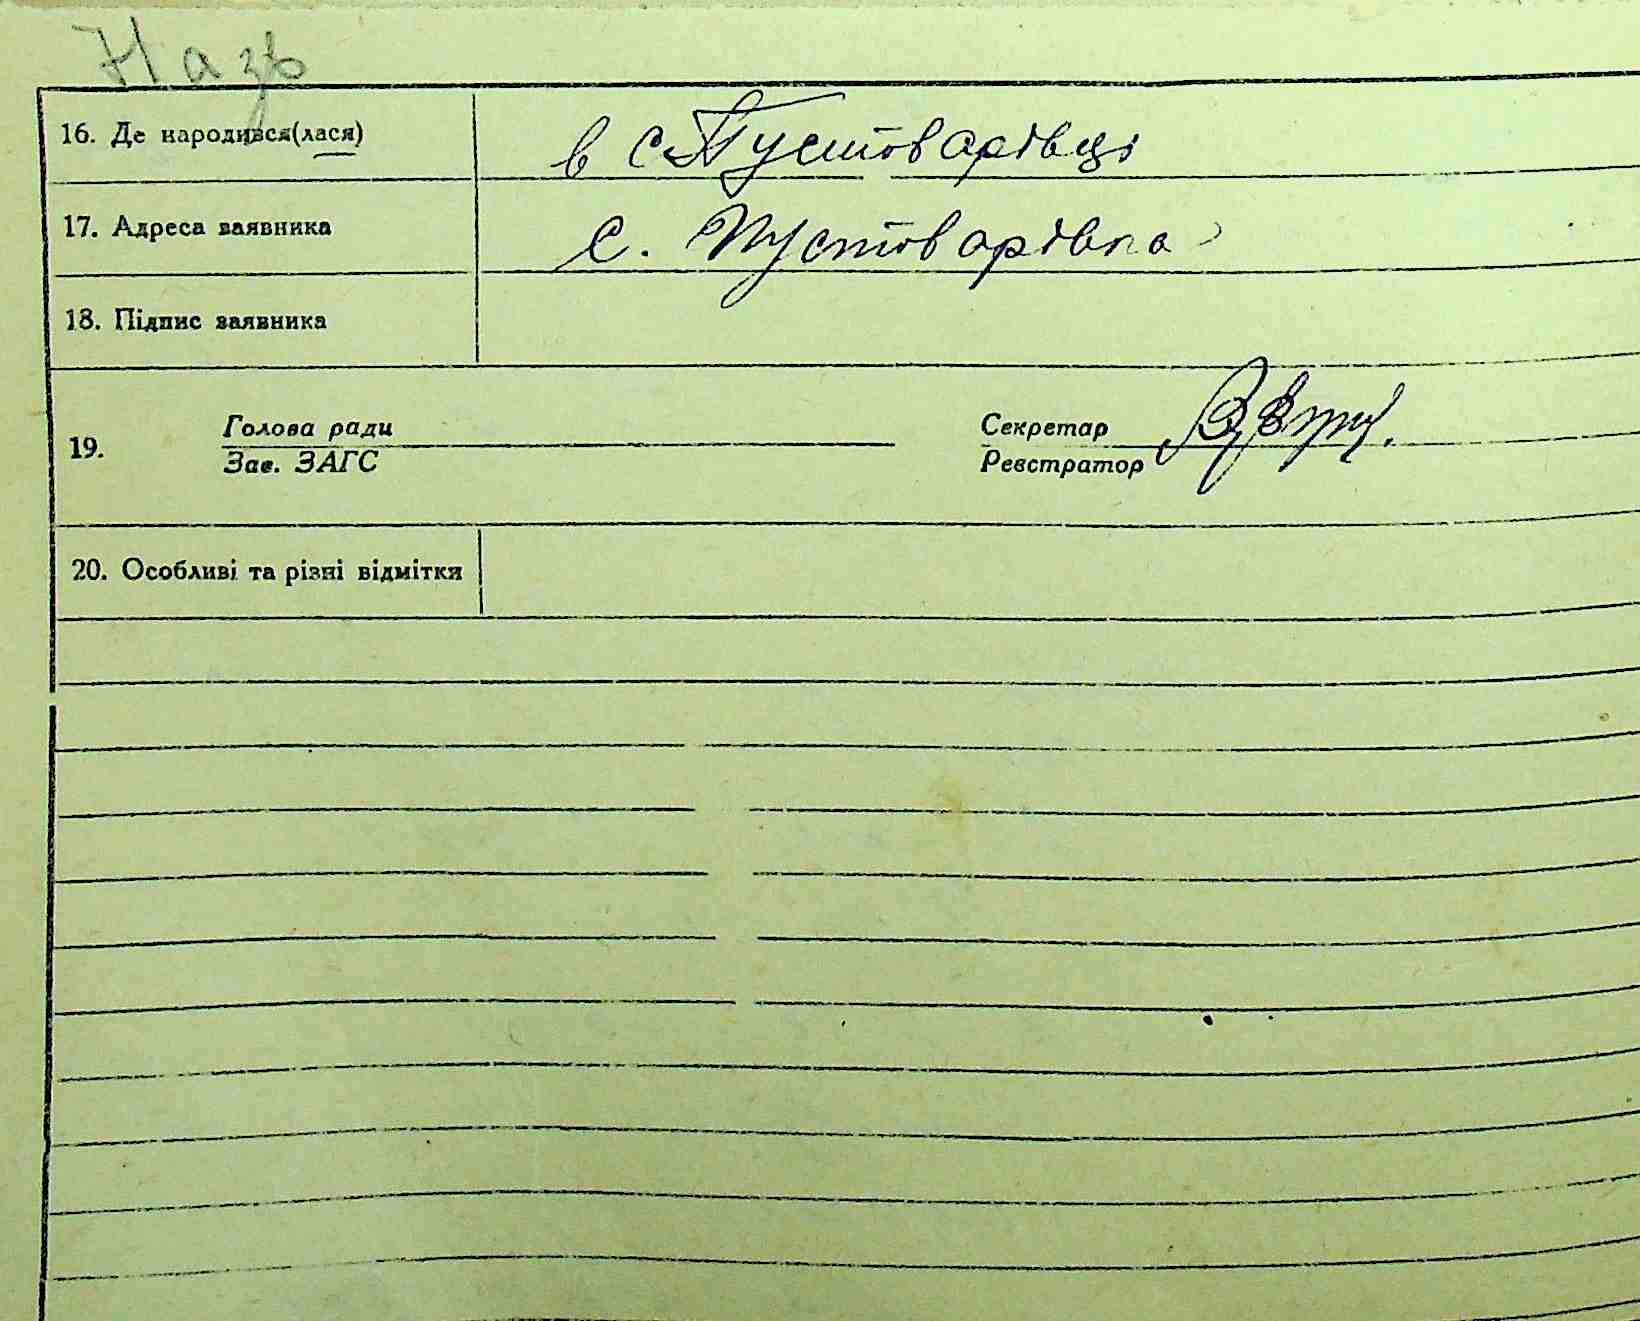 Назв
16. Де народився(лася) в с. Пустоварівці
17. Адреса заявника с. Пустоварівка
18. Підпис заявника
19. Голова ради Секретар
Зав. ЗАГС Реєстратор
20. Особливі та різні відмітки